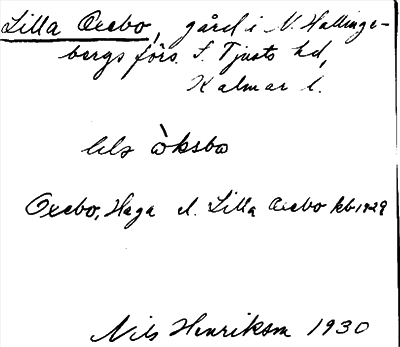 Lilla Oxebo, gård i V. Hallinge-
bergs förs. S. Tjusts hd,
Kalmar l.
lılz òksbo
Oxebo, Haga el. Lilla Oxebo kb 1929
Nils Henrikson 1930